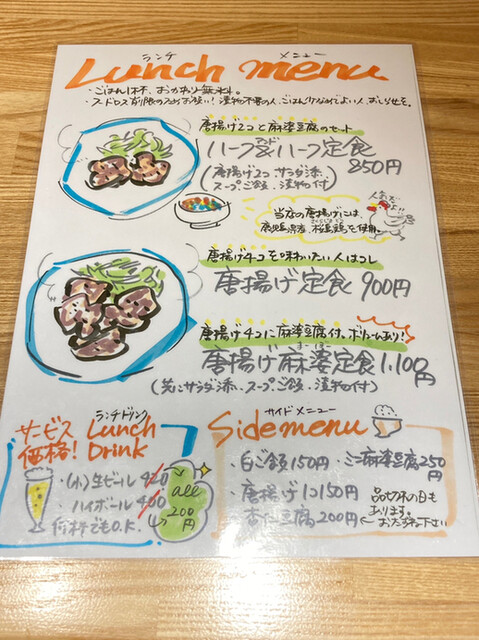 ランチ メニュー
Lunch menu
・ごはん1杯、おかわり無料。
・フードロス削限のためお願い！漬物不要の人、ごはん少なめでよい人、おしらせを。
唐揚げ2つと麻婆豆腐のセット
ハーフ&ハーフ定食 850円
(唐揚げ2つ、サラダ添、
スープご飯、漬物付)
人気だよい
当店の唐揚げには、
鹿児島県産 桜島鶏を使用。
唐揚げ4コを味わいたい人はコレ
唐揚げ定食 900円
唐揚げ4コに麻婆豆腐付。ボリュームあり!
まーぼー
唐揚げ麻婆定食 1,100円
(共にサラダ添、スープご飯、漬物付)
サービス価格!
ランチドリンク
Lunch Drink
・(小)生ビール 420
・ハイボール 400
何杯でもO.K.
all 200円
サイドメニュー
Side menu
・白ご飯150円 ・ミニ麻婆豆腐250円
・唐揚げ1コ150円
・杏仁豆腐200円
品切れの日もあります。
おたずね下さい